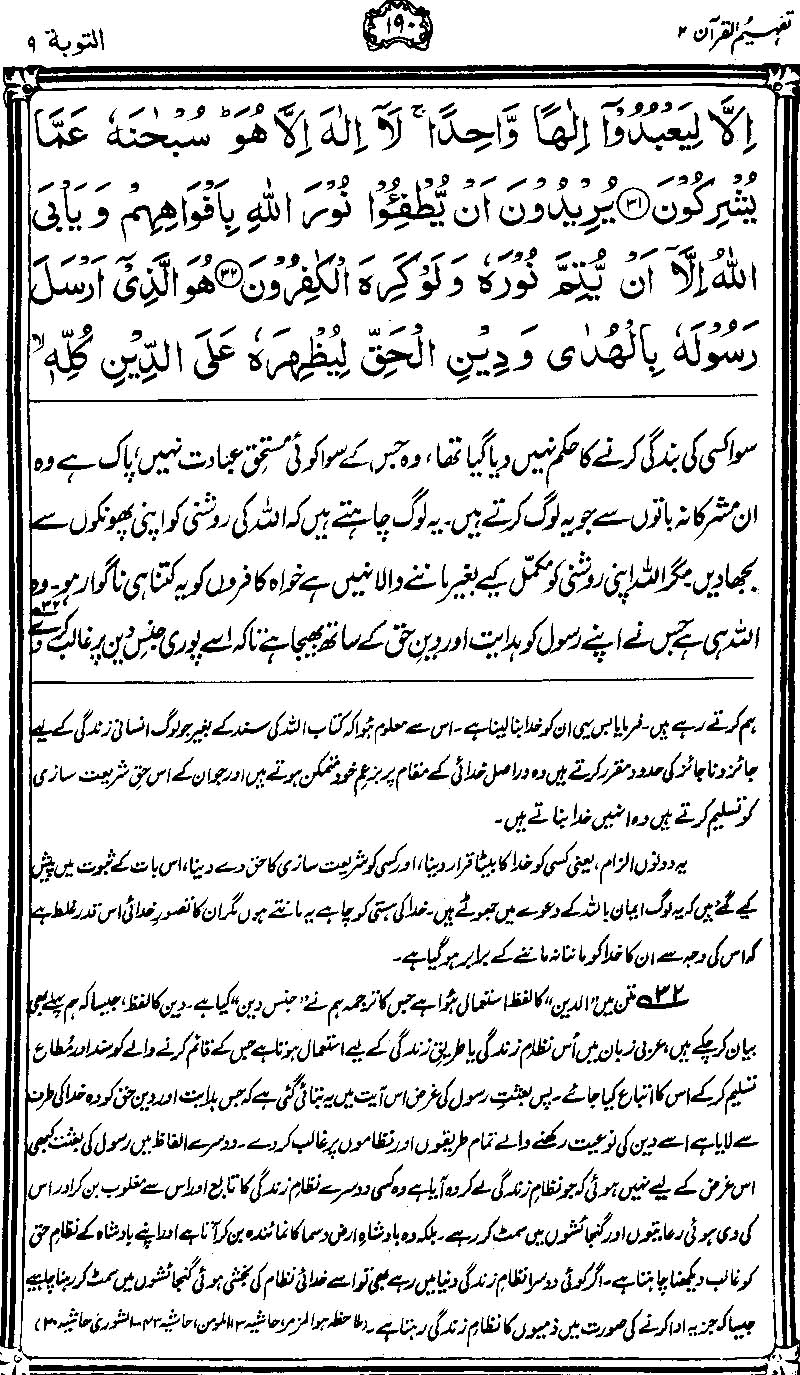 تفہیم القرآن ۲
۱۹۰
التوبة ۹
اِلَّا لِيَعْبُدُوْٓا اِلٰهًا وَّاحِدًا ۚ لَآ اِلٰهَ اِلَّا هُوَ ؕ سُبْحٰنَهٗ عَمَّا
يُشْرِكُوْنَ ۳۱ يُرِيْدُوْنَ اَنْ يُّطْفِـُٔوْا نُوْرَ اللّٰهِ بِاَفْوَاهِهِمْ وَيَاْبَى
اللّٰهُ اِلَّآ اَنْ يُّتِمَّ نُوْرَهٗ وَلَوْ كَرِهَ الْكٰفِرُوْنَ ۳۲ هُوَ الَّذِيْٓ اَرْسَلَ
رَسُوْلَهٗ بِالْهُدٰى وَدِيْنِ الْحَقِّ لِيُظْهِرَهٗ عَلَى الدِّيْنِ كُلِّهٖ ۙ
سوا کسی کی بندگی کرنے کا حکم نہیں دیا گیا تھا، وہ جس کے سوا کوئی مستحقِ عبادت نہیں، پاک ہے وہ
ان مشرکانہ باتوں سے جو یہ لوگ کرتے ہیں۔ یہ لوگ چاہتے ہیں کہ اللہ کی روشنی کو اپنی پھونکوں سے
بجھا دیں مگر اللہ اپنی روشنی کو مکمّل کیے بغیر ماننے والا نہیں ہے خواہ کافروں کو یہ کتنا ہی ناگوار ہو۔ وہ
اللہ ہی ہے جس نے اپنے رسول کو ہدایت اور دینِ حق کے ساتھ بھیجا ہے تاکہ اسے پوری جنسِ دین پر غالب کر دے ۳۲
ہم کرتے رہے ہیں۔ فرمایا بس یہی ان کو خدا بنا لینا ہے۔ اس سے معلوم ہؤا کہ کتاب اللہ کی سند کے بغیر جو لوگ انسانی زندگی کے لیے
جائز و ناجائز کی حدود مقرر کرتے ہیں وہ دراصل خدائی کے مقام پر بزعمِ خود متمکن ہوتے ہیں اور جو ان کے اس حقِ شریعت سازی
کو تسلیم کرتے ہیں وہ انہیں خدا بناتے ہیں۔
یہ دونوں الزام، یعنی کسی کو خدا کا بیٹا قرار دینا، اور کسی کو شریعت سازی کا حق دے دینا، اس بات کے ثبوت میں پیش
کیے گئے ہیں کہ یہ لوگ ایمان باللہ کے دعوے میں جھوٹے ہیں۔ خدا کی ہستی کو چاہے یہ مانتے ہوں مگر ان کا تصورِ خدائی اس قدر غلط ہے
کہ اس کی وجہ سے ان کا خدا کو ماننا نہ ماننے کے برابر ہو گیا ہے۔
۳۲ متن میں ”الدین“ کا لفظ استعمال ہؤا ہے جس کا ترجمہ ہم نے ”جنسِ دین“ کیا ہے۔ دین کا لفظ، جیسا کہ ہم پہلے بھی
بیان کر چکے ہیں، عربی زبان میں اُس نظامِ زندگی یا طریقِ زندگی کے لیے استعمال ہوتا ہے جس کے قائم کرنے والے کو سند اور مُطاع
تسلیم کر کے اس کا اتباع کیا جائے۔ پس بعثتِ رسول کی غرض اس آیت میں یہ بتائی گئی ہے کہ جس ہدایت اور دینِ حق کو وہ خدا کی طرف
سے لایا ہے اسے دین کی نوعیت رکھنے والے تمام طریقوں اور نظاموں پر غالب کر دے۔ دوسرے الفاظ میں رسول کی بعثت کبھی
اس غرض کے لیے نہیں ہوئی کہ جو نظامِ زندگی لے کر وہ آیا ہے وہ کسی دوسرے نظامِ زندگی کا تابع اور اس سے مغلوب بن کر اور اس
کی دی ہوئی رعایتوں اور گنجائشوں میں سمٹ کر رہے۔ بلکہ وہ بادشاہِ ارض و سما کا نمائندہ بن کر آتا ہے اور اپنے بادشاہ کے نظامِ حق
کو غالب دیکھنا چاہتا ہے۔ اگر کوئی دوسرا نظامِ زندگی دنیا میں رہے بھی تو اسے خدائی نظام کی بخشی ہوئی گنجائشوں میں سمٹ کر رہنا چاہیے
جیسا کہ جزیہ ادا کرنے کی صورت میں ذمیوں کا نظامِ زندگی رہتا ہے۔ (ملاحظہ ہو الزمر، حاشیہ ۳، المومن، حاشیہ ۴۳، الشوریٰ حاشیہ ۲۰)